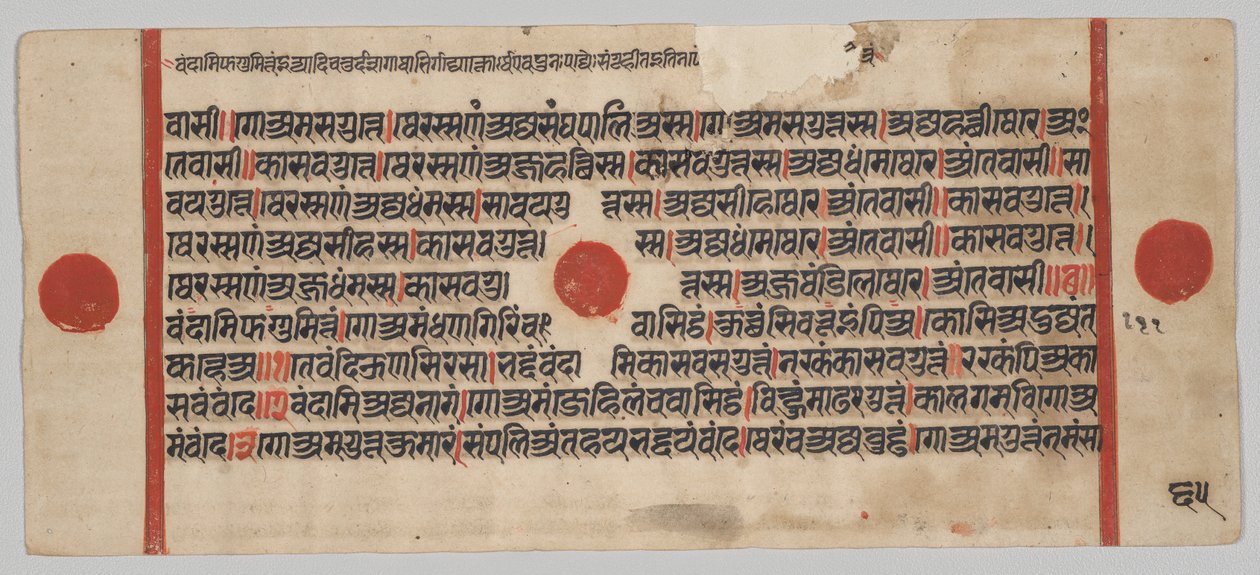 वंदामि फगुमित्तं इत्यादि चतुर्दशगाथाभिर्गद्योक्तोऽर्थ एव पुनः पद्यैः संगृहीत इति न
वासी॥ गोअमसगुत्ते। थेरस्स णं अज्जसंघपालिअस्स। गोअमसगुत्तस्स। अज्जहत्थी थेरे। अं
तेवासी॥ कासवगुत्ते। थेरस्स णं अज्जहत्थिस्स। कासवगुत्तस्स। अज्जधंमे थेरे। अंतेवासी॥ सा
वयगुत्ते। थेरस्स णं अज्जधंमस्स। सावयगुत्तस्स। अज्जसीहे थेरे। अंतेवासी॥ कासवगुत्ते॥
थेरस्स णं अज्जसीहस्स। कासवगुत्तस्स। अज्जधंमे थेरे। अंतेवासी॥ कासवगुत्ते॥
थेरस्स णं अज्जधंमस्स। कासवगुत्तस्स। अज्जसंडिले थेरे। अंतेवासी॥छ॥
वंदामि फग्गुमित्तं। गोअमं धणगिरिं च वासिट्ठं। कुच्छं सिवभूइं पि अ। कोसिअ दुज्जंत
कण्हे अ॥१॥ ते वंदिऊण सिरसा। भद्दं वंदामि कासवसगुत्तं। नक्खं कासवगुत्तं॥ रक्खं पि अ का
सवं वंदे॥२ वंदामि अज्जनागं। गोअमं जेहिलं च वासिट्ठं। विण्हुं माढरगुत्तं। कालगमवि गोअ
मं वंदे।३ गोअमगुत्तकुमारं। संपलिअं तह य भद्दयं वंदे। थेरं च अज्जवुड्ढं। गोअमगुत्तं नमंसा
६५